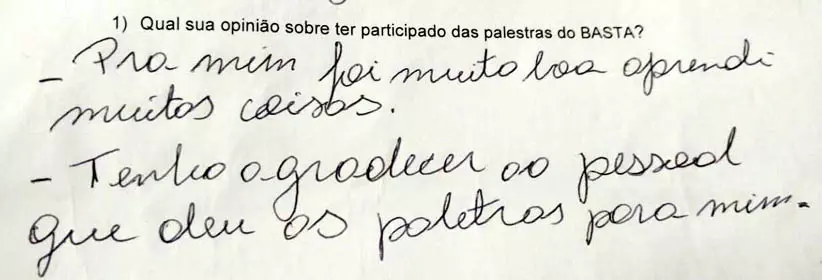 1) Qual sua opinião sobre ter participado das palestras do BASTA?
- Pra mim foi muito boa aprendi
muitos coisas.
- Tenho agradecer ao pessoal
que deu as paletras para mim.